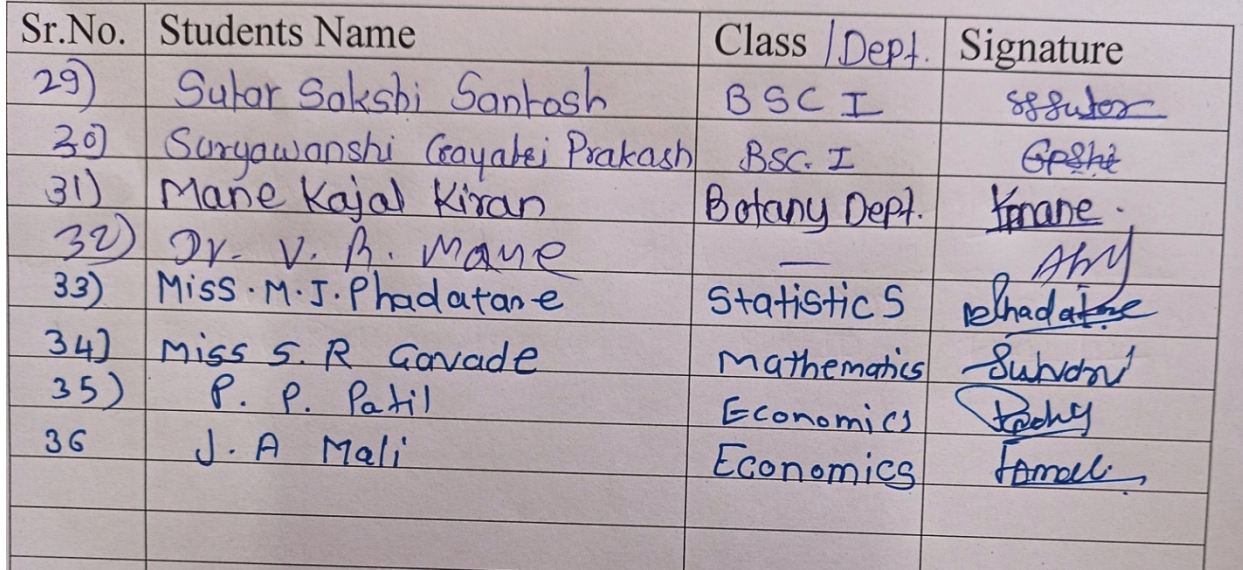 Sr.No. Students Name Class /Dept. Signature
29) Sutar Sakshi Santosh BSC I sssutar
30) Suryawanshi Gayatri Prakash BSC. I
31) Mane Kajal Kiran Botany Dept. Kmane.
32) Dr. V. R. Mane —
33) Miss.M.J.Phadatare Statistics
34) Miss S. R Gavade Mathematics
35) P. P. Patil Economics
36 J. A Mali Economics